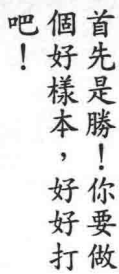 首先是勝！你要做
個好樣本，好好打
吧！